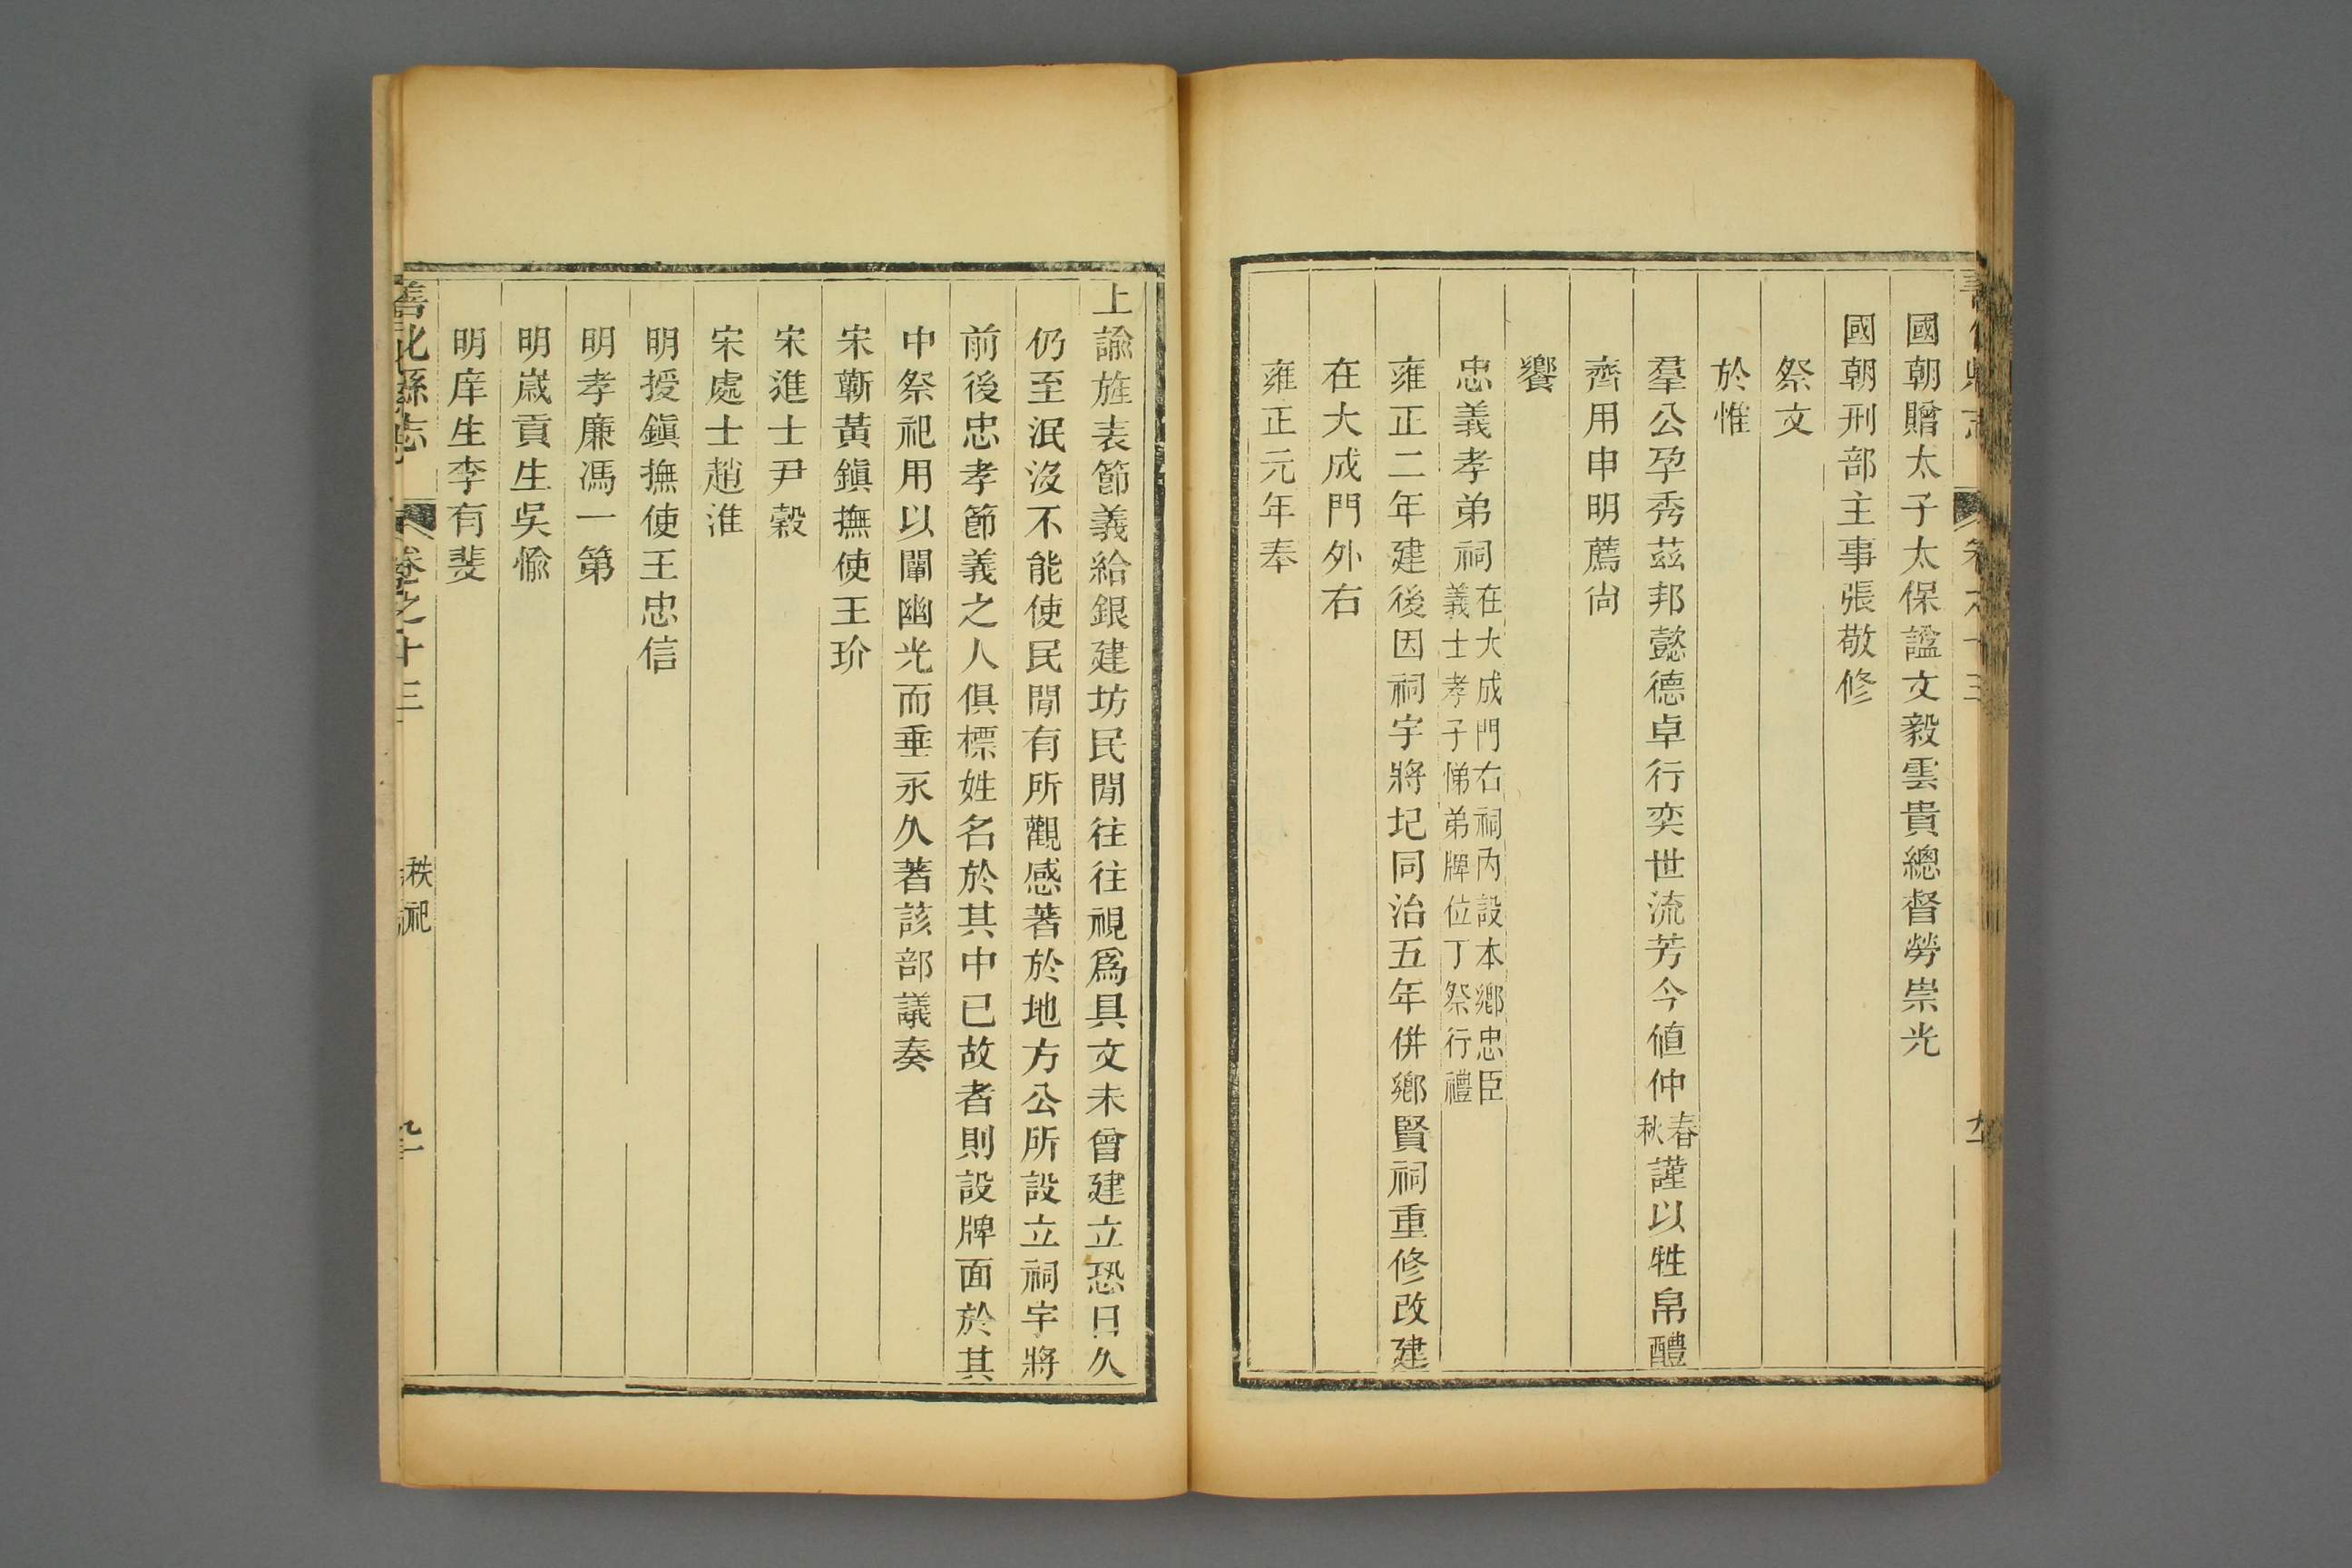 國朝贈太子太保諡文毅雲貴總督勞崇光
國朝刑部主事張敬修
祭文
於惟
羣公孕秀茲邦懿德卓行奕世流芳今値仲春秋謹以牲帛醴
齊用申明薦尙
饗
忠義孝弟祠在大成門右祠內設本鄉忠臣義士孝子悌弟牌位丁祭行禮
雍正二年建後因祠宇將圮同治五年併鄉賢祠重修改建
在大成門外右
雍正元年奉
上諭旌表節義給銀建坊民閒往往視爲具文未曾建立恐日久
仍至泯沒不能使民閒有所觀感著於地方公所設立祠宇將
前後忠孝節義之人俱標姓名於其中已故者則設牌面於其
中祭祀用以闡幽光而垂永久著該部議奏
宋蘄黃鎭撫使王玠
宋進士尹穀
宋處士趙淮
明授鎭撫使王忠信
明孝廉馮一第
明歲貢生吳愉
明庠生李有斐
善化縣志 卷之十三 秩祀 九